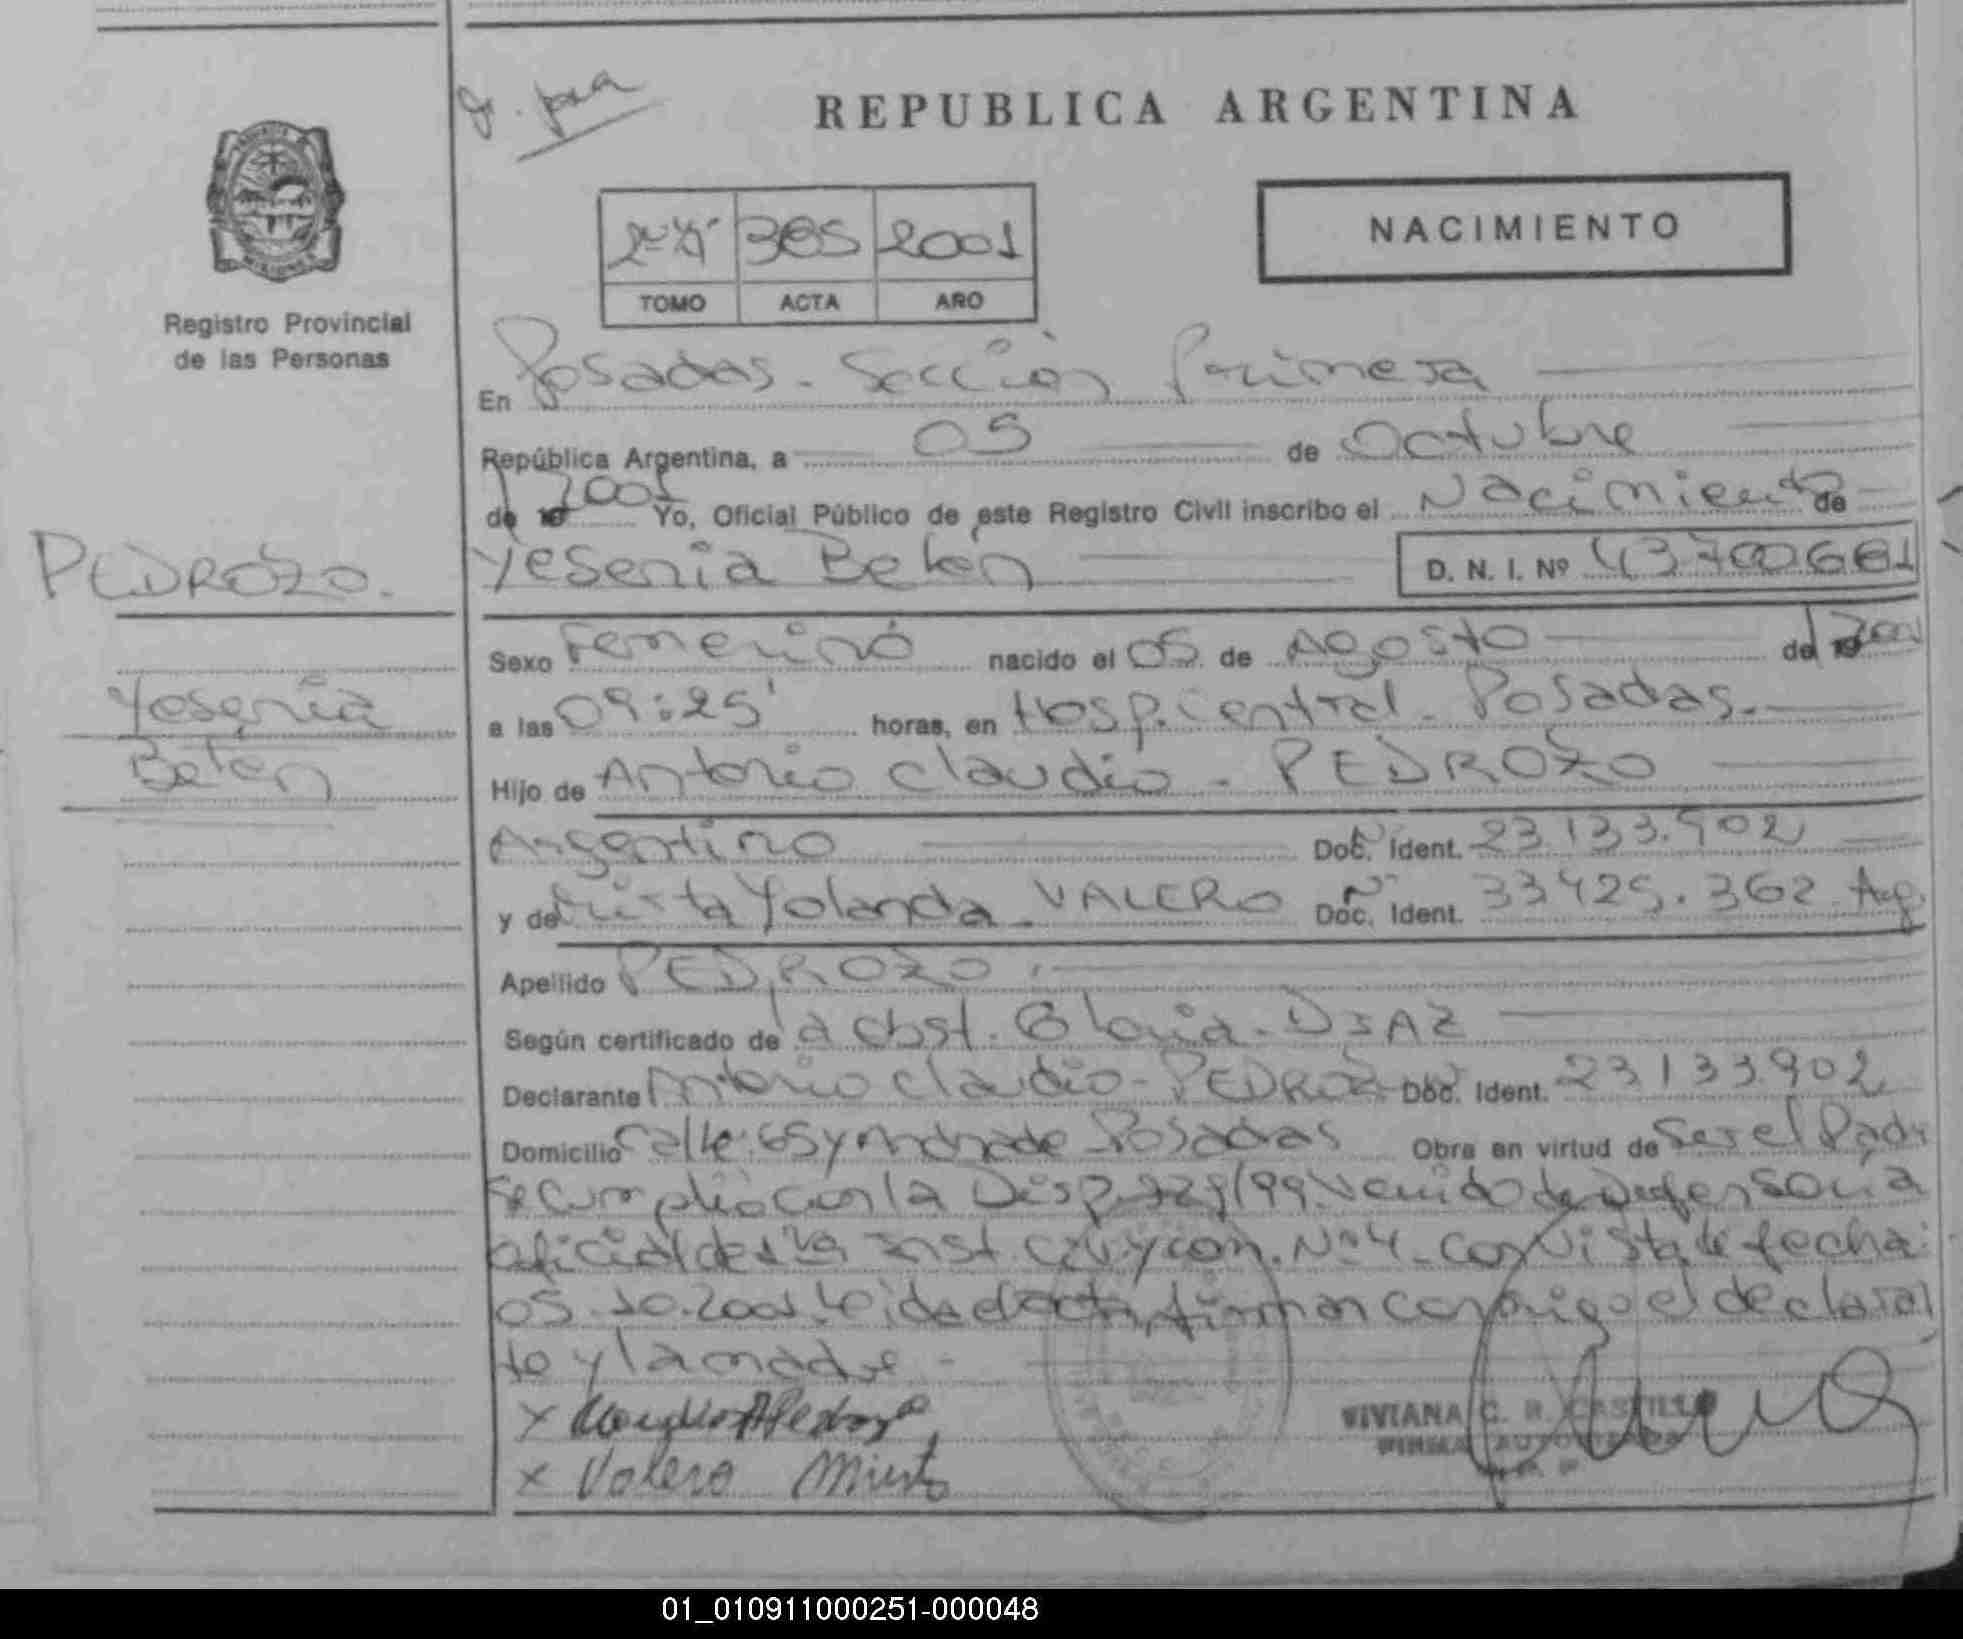 REPUBLICA ARGENTINA
365 2001
TOMO ACTA AÑO
NACIMIENTO
Registro Provincial
de las Personas
En Posadas - Sección Primera
República Argentina, a 05 de Octubre
de 2001 Yo, Oficial Público de este Registro Civil inscribo el Nacimiento de
PEDROZO.
Yesenia Belen D. N. I. Nº 43700661
Sexo Femenino nacido el 05 de Agosto de 2001
Yesenia
a las 09:25' horas, en Hosp. Central - Posadas.
Belen
Hijo de Antonio Claudio - PEDROZO
Argentino Doc. Ident. 23.133.902
y de Mirta Yolanda - VALERO Doc. Ident. 33425.362 - Arg.
Apellido PEDROZO
Según certificado de la obst. Gloria - DIAZ
Declarante Antonio Claudio - PEDROZO Doc. Ident. 23.133.902
Domicilio Calle: 65 y Andrade - Posadas Obra en virtud de Ser el Padre
Se cumplió con la Disp. 229/99 venido de Defensoria
oficial de 1ra Inst. Civ. y Com. Nº 4 - Con Vista de fecha:
05.10.2001. Leida el acta, firman conmigo el declaran
te y la madre -
x Claudio A Pedrozo
x Valero Mirta
VIVIANA C. R. CASTILLO
FIRMA AUTORIZADA
01_010911000251-000048